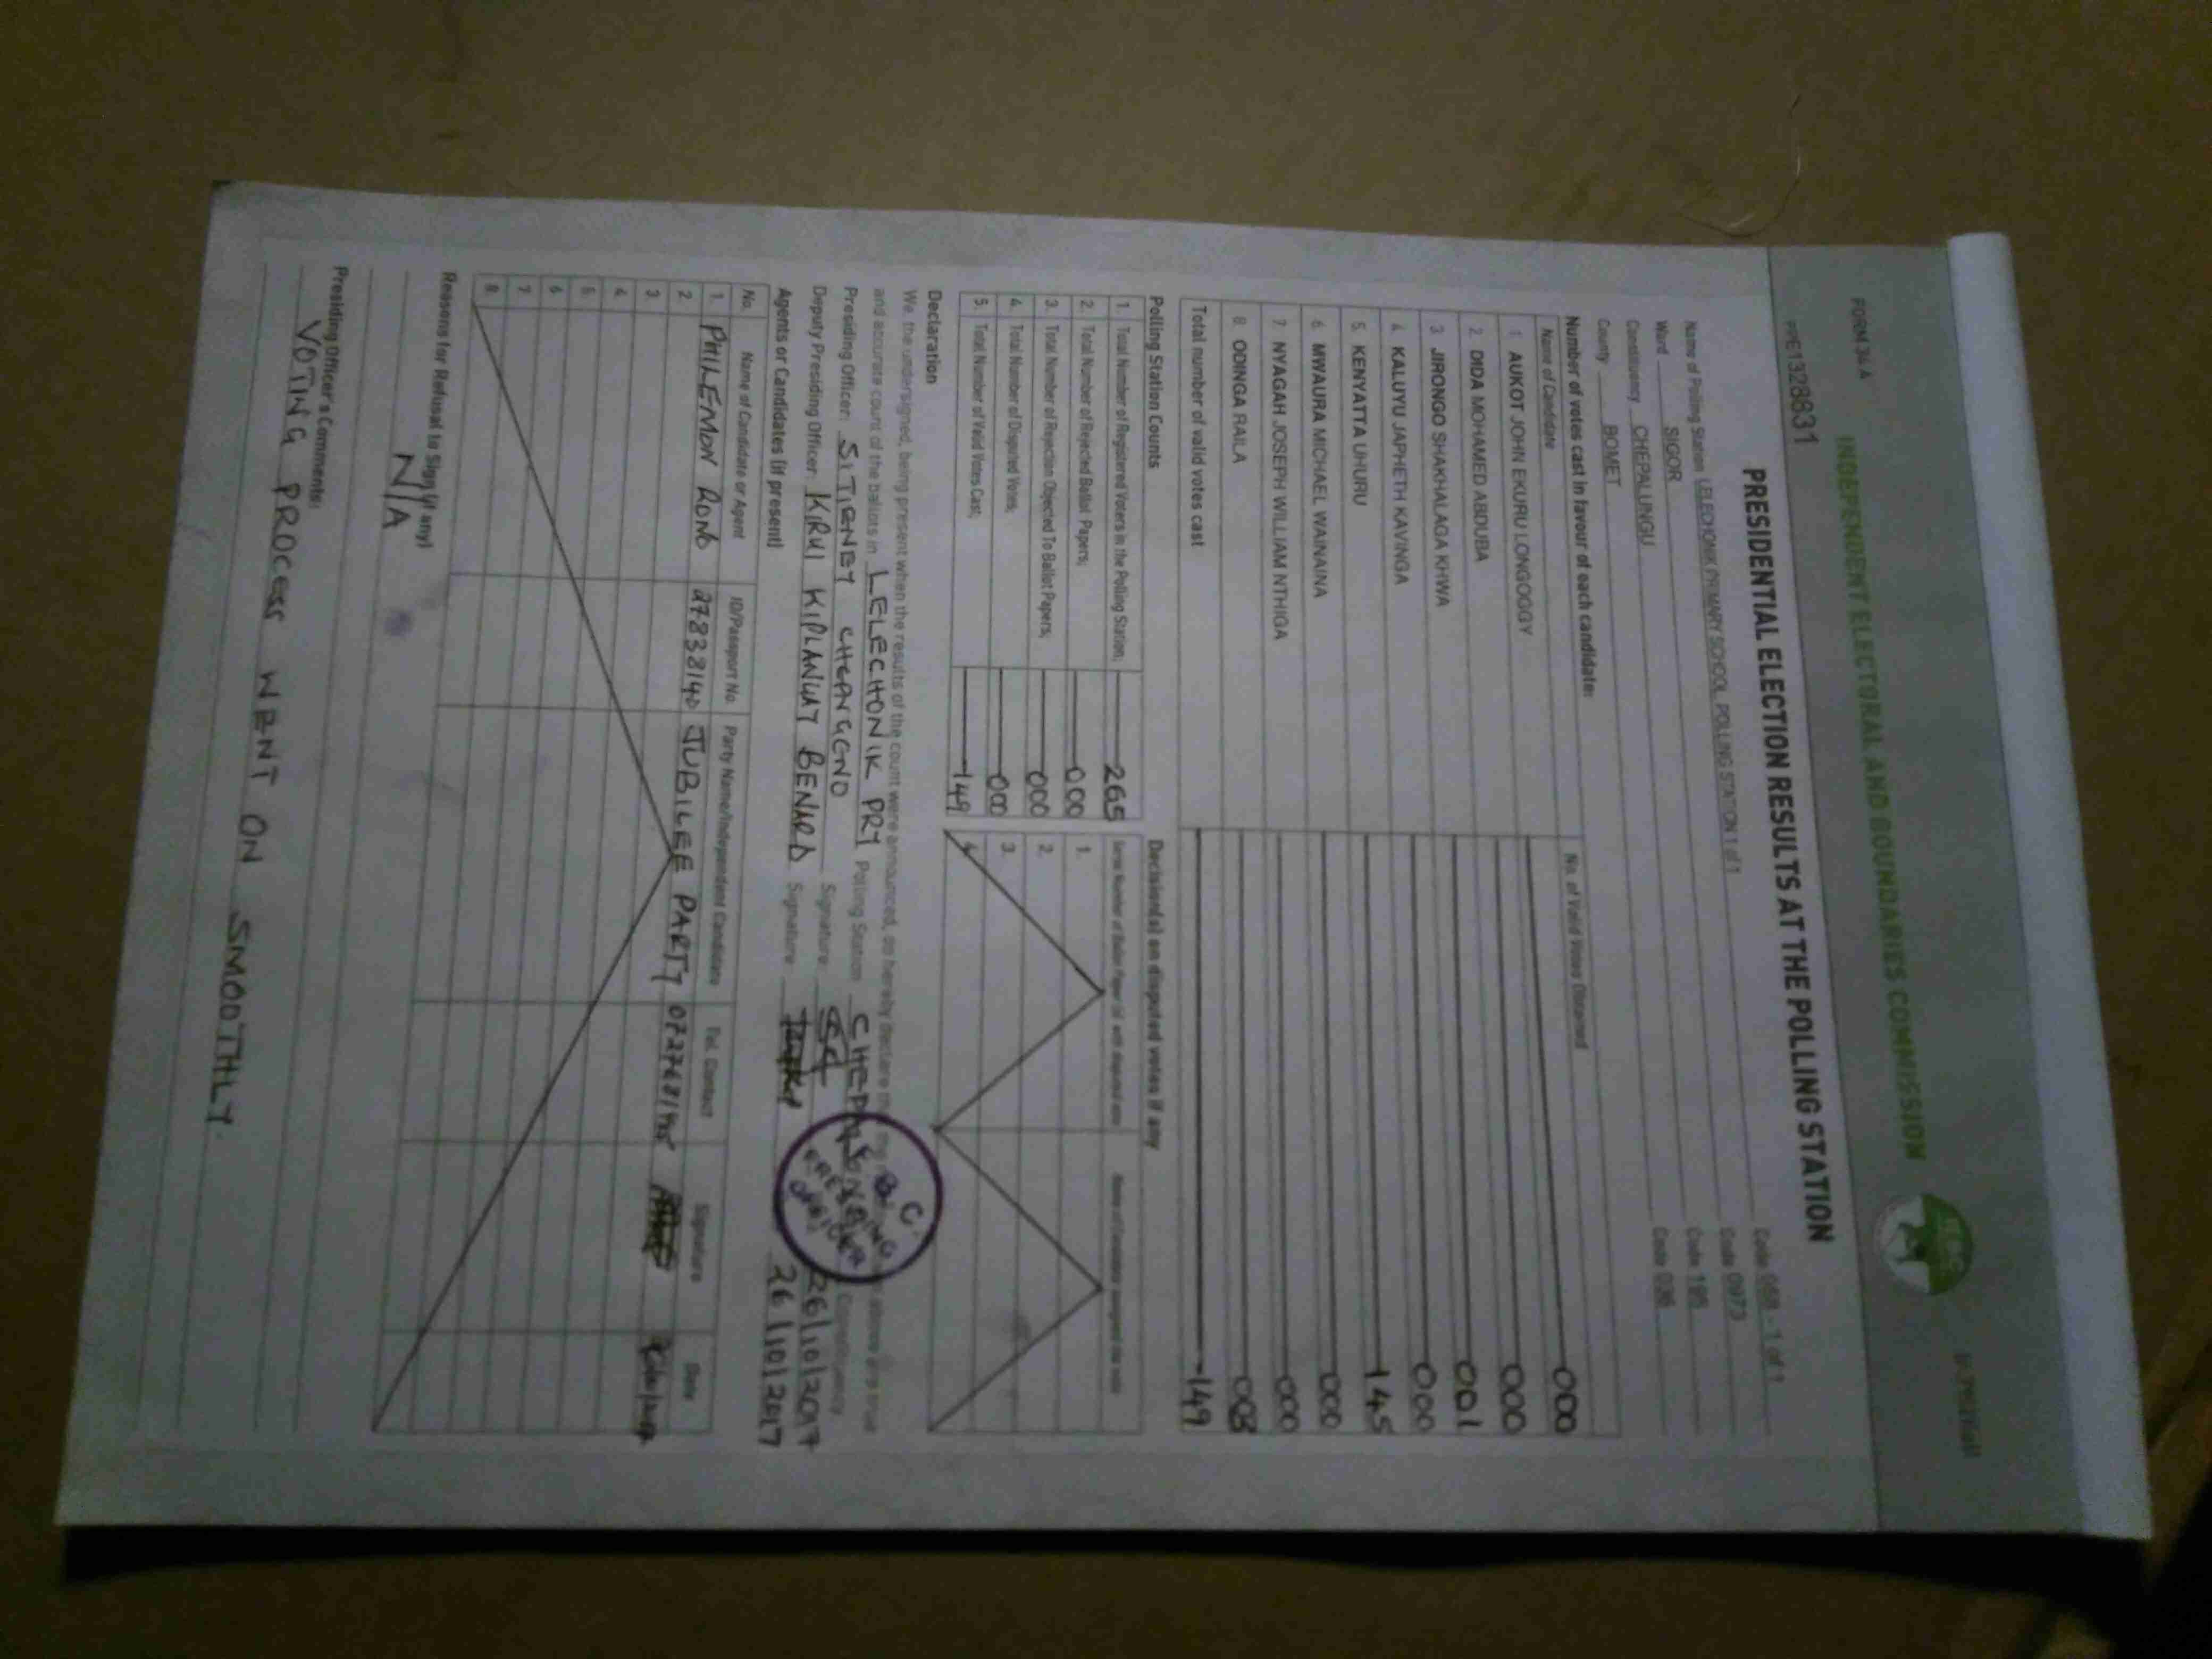 FORM 34A
INDEPENDENT ELECTORAL AND BOUNDARIES COMMISSION
IEBC
PPE1328831
PRESIDENTIAL ELECTION RESULTS AT THE POLLING STATION
Name of Polling Station LELECHONIK PRIMARY SCHOOL POLLING STATION 1 of 1 Code 068 - 1 of 1
Ward SIGOR Code 0973
Constituency CHEPALUNGU Code 195
County BOMET Code 036
Number of votes cast in favour of each candidate:
Name of Candidate No. of Valid Votes Obtained
1. AUKOT JOHN EKURU LONGOGGY 000
2. DIDA MOHAMED ABDUBA 000
3. JIRONGO SHAKHALAGA KHWA 001
4. KALUYU JAPHETH KAVINGA 000
5. KENYATTA UHURU 145
6. MWAURA MICHAEL WAINAINA 000
7. NYAGAH JOSEPH WILLIAM NTHIGA 000
8. ODINGA RAILA 003
Total number of valid votes cast 149
Polling Station Counts
1. Total Number of Registered Voters in the Polling Station; 265
2. Total Number of Rejected Ballot Papers; 000
3. Total Number of Rejection Objected To Ballot Papers; 000
4. Total Number of Disputed Votes; 000
5. Total Number of Valid Votes Cast; 149
Decision(s) on disputed votes if any
1.
2.
3.
4.
Declaration
We, the undersigned, being present when the results of the count were announced, do hereby declare that the results above are a true
and accurate count of the ballots in LELECHONIK PRY Polling Station Constituency
Presiding Officer: SITIENEY Signature 26/10/2017
Deputy Presiding Officer: KIRUI KIPLANGAT BENARD Signature 26/10/2017
PRESIDING OFFICER
Agents or Candidates (if present)
No. Name of Candidate or Agent ID/Passport No. Party Name/Independent Candidate Tel. Contact Signature Date
1. PHILEMON RONO JUBILEE PARTY
2.
3.
4.
5.
6.
7.
8.
Reasons for Refusal to Sign (if any)
N/A
Presiding Officer's Comments:
VOTING PROCESS WENT ON SMOOTHLY.